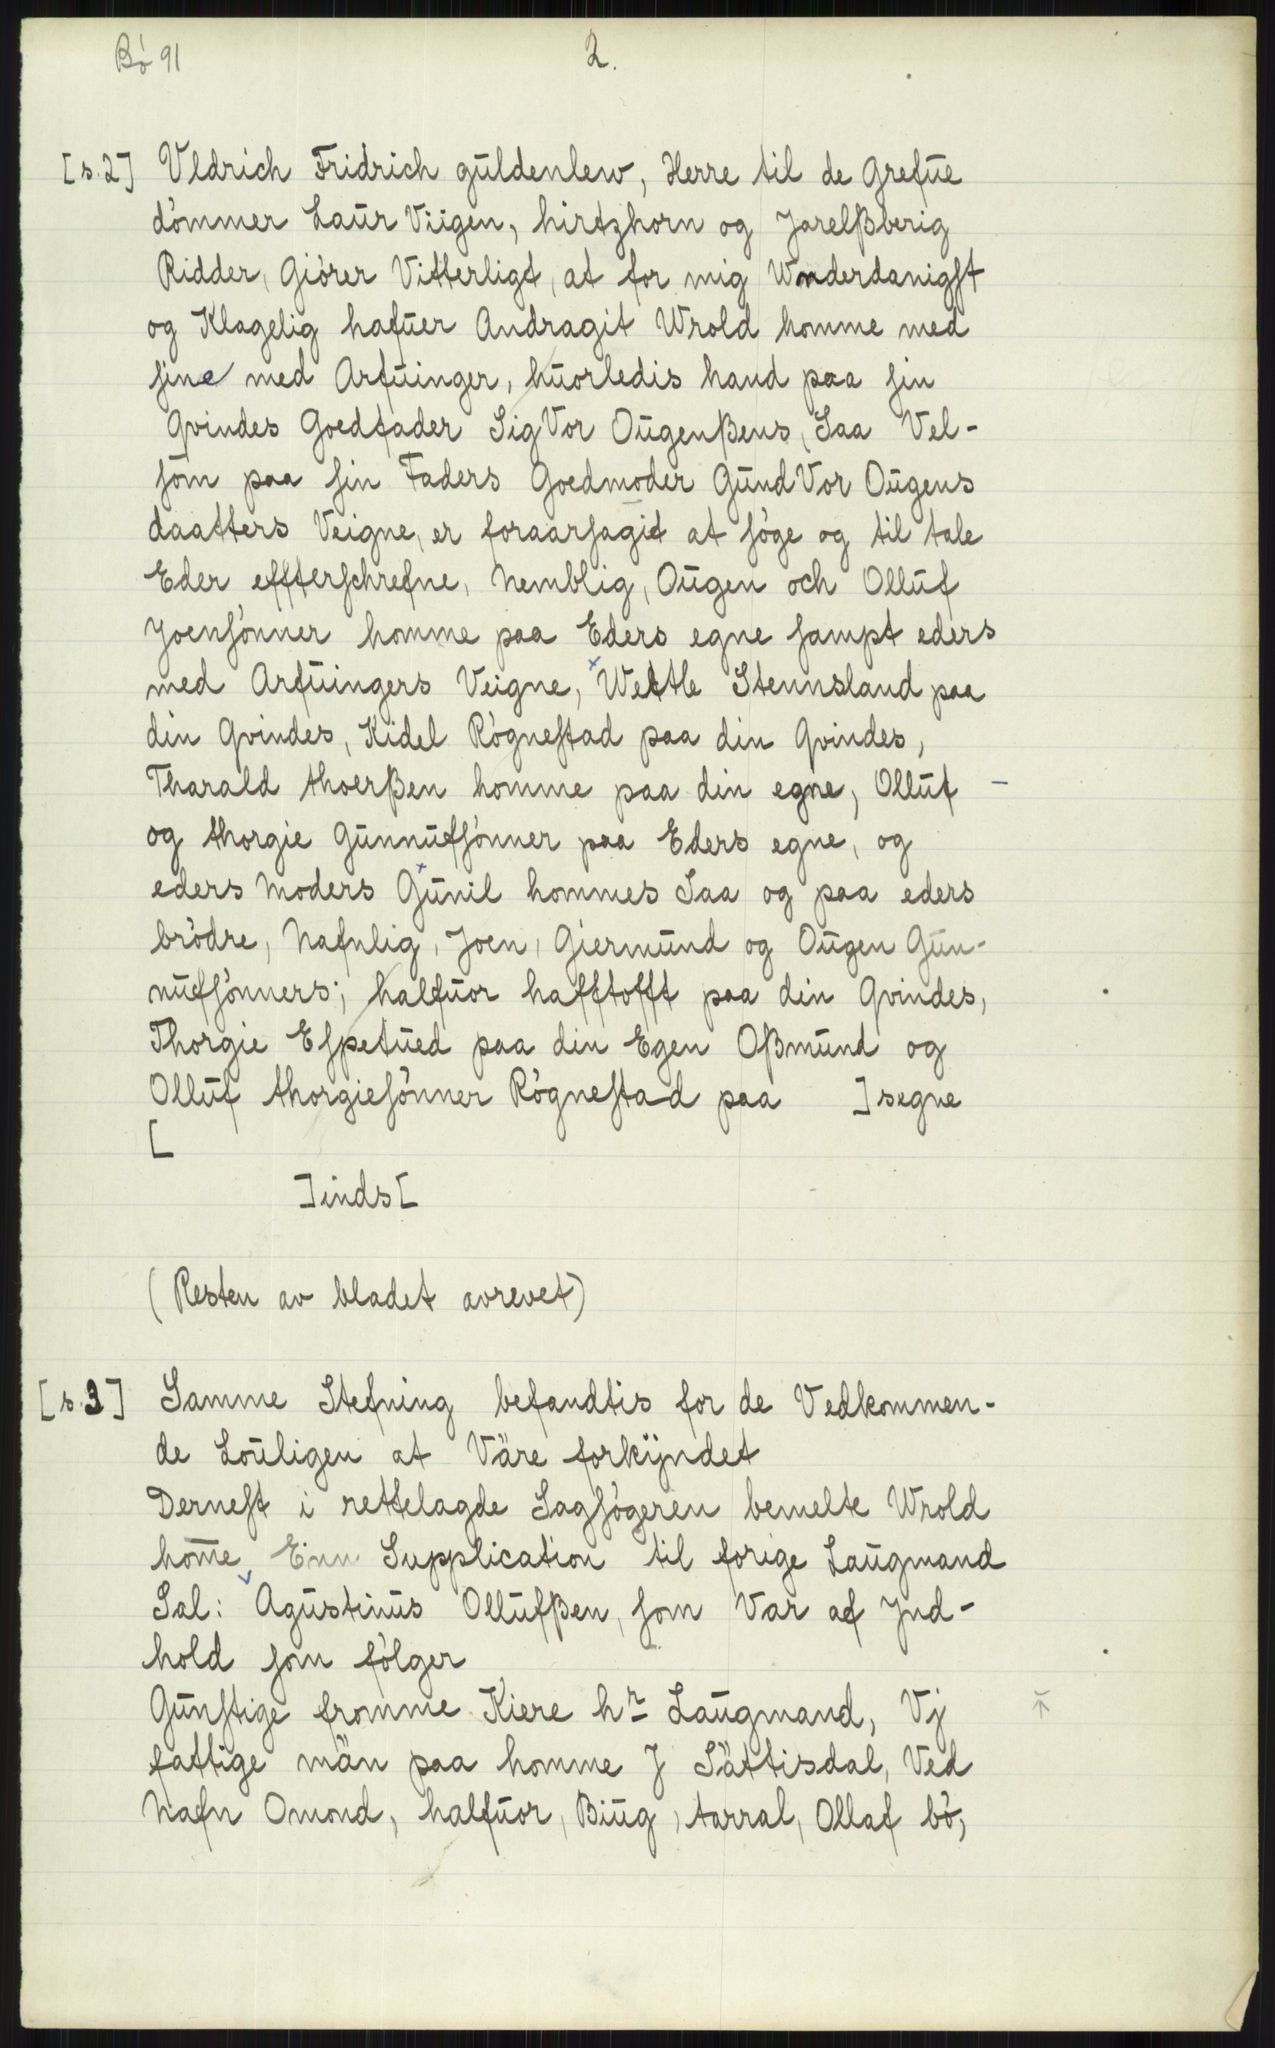 Bó 91
2.
[s.2] Vldrich Fridrich gūldenlew, Herre til de grefūe
dómmer Laūr Viigen, hirtzhorn og Jarelßberig
Ridder, Giórer Vitterligt, at for mig Wnderdanigst
og Klagelig hafūer Andragit Wrold homme med
sine med Arfūinger, hūorledis hand paa sin
Qvindes Goedfader SigVor Oūgenßens, Saa Vel-
som paa sin Faders Goedmoder GūndVor Oūgens
daatters Veigne, er foraarsagit at sóge og til tale
Eder effterschrefne, Nemblig, Oūgen och Ollūf
Joensónner homme paa Eders egne sampt eders
med Arfūingers Veigne, Wettle Stennsland paa
din Qvindes, Kidel Rógnestad paa din Qvindes,
Tharald thoerßen homme paa din egne, Ollūf –
og thorgie Gūnnūfsónner paa Eders egne, og
eders Moders Gūnil hommes Saa og paa eders
bródre, Nafnlig, Joen, Giermūnd og Oūgen Gūn-
nūfsónners; halfūor hafftofft paa din Qvindes,
Thorgie Espetūed paa din Egen Oßmūnd og
Ollūf thorgiesónner Rógnestad paa ]segne
[
]inds[
(Resten av bladet avrevet)
[s.3] Samme Stefning befandtis for de Vedkommen-
de Loūligen at Väre forkÿndet
Dernest i rettelagde Sagsógeren bemelte Wrold
hom̄e Einn Supplication til forige Laūgmand
Sal: Agūstinūs Ollūfßen, som Var af Jnd-
hold som fólger
Gūnstige fromme Kiere hr Laūgmand, Vj
fattige män paa homme J Sättisdal, Ved
Nafn Omond, halfūor, Biūg, tarral, Ollaf bó,